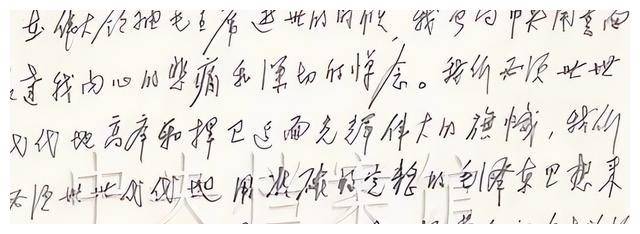 在伟大领袖毛主席逝世的时候，我曾向中央用书面
达我内心的悲痛和深切的悼念。我们必须世世
代代地高举和捍卫这面光辉伟大的旗帜，我们
必须世世代代地用准确的完整的毛泽东思想来
中央档案馆